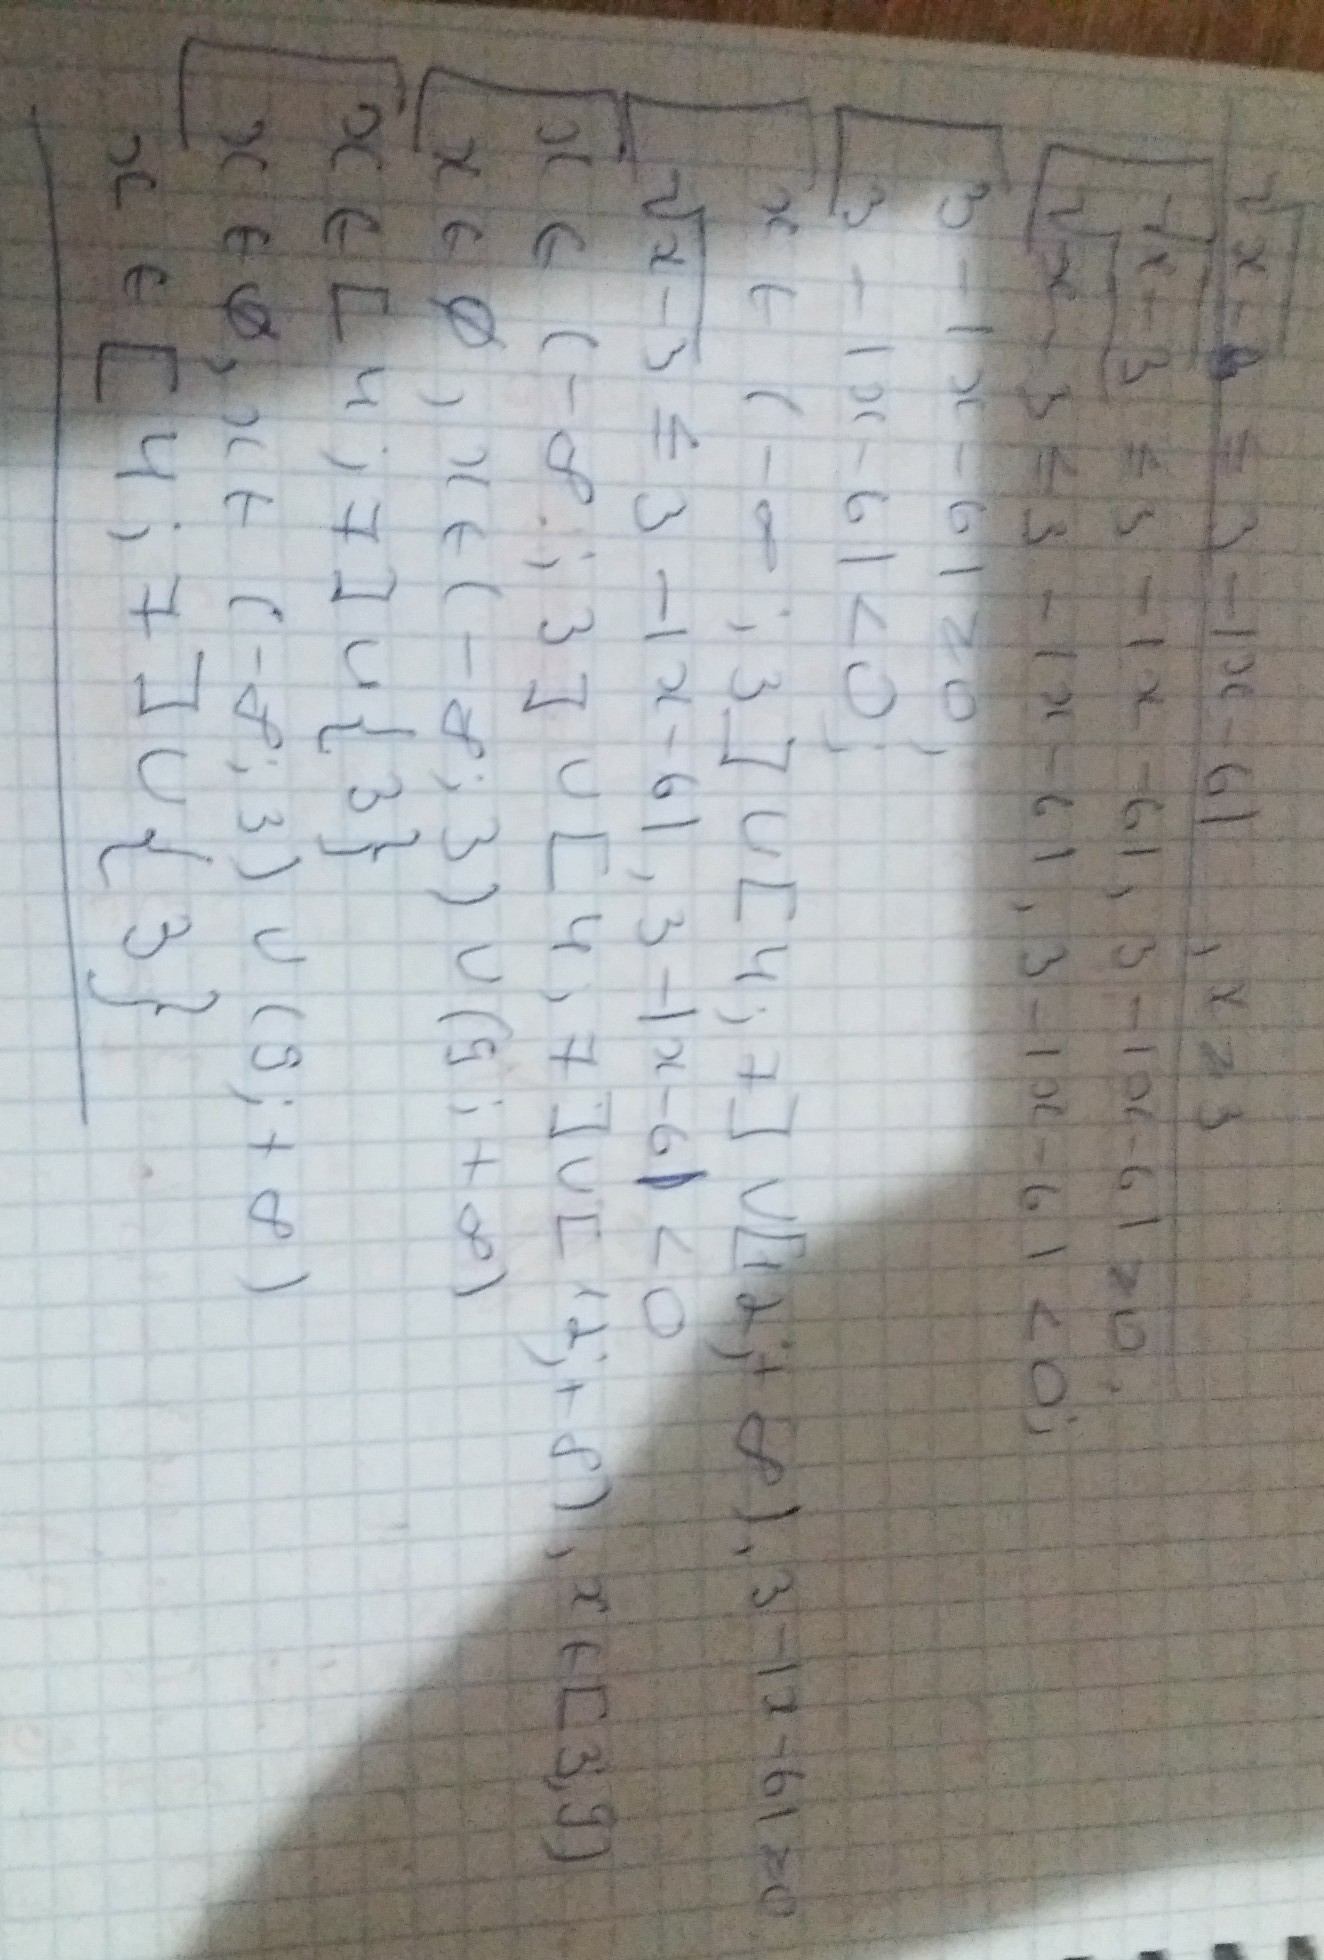 √x-3 ≤ 3-|x-6| , x ≥ 3
√x-3 ≤ 3-|x-6|, 3-|x-6| ≥ 0,
√x-3 ≤ 3-|x-6|, 3-|x-6| < 0;
3-|x-6| ≥ 0,
3-|x-6| < 0;
x ∈ (-∞; 3] ∪ [4; 7] ∪ [12; +∞), 3-|x-6| ≥ 0
√x-3 ≤ 3-|x-6|, 3-|x-6| < 0
x ∈ (-∞; 3] ∪ [4; 7] ∪ [12; +∞), x ∈ [3, 9)
x ∈ ∅, x ∈ (-∞; 3) ∪ (9; +∞)
x ∈ [4; 7] ∪ {3}
x ∈ ∅, x ∈ (-∞; 3) ∪ (9; +∞)
x ∈ [4; 7] ∪ {3}